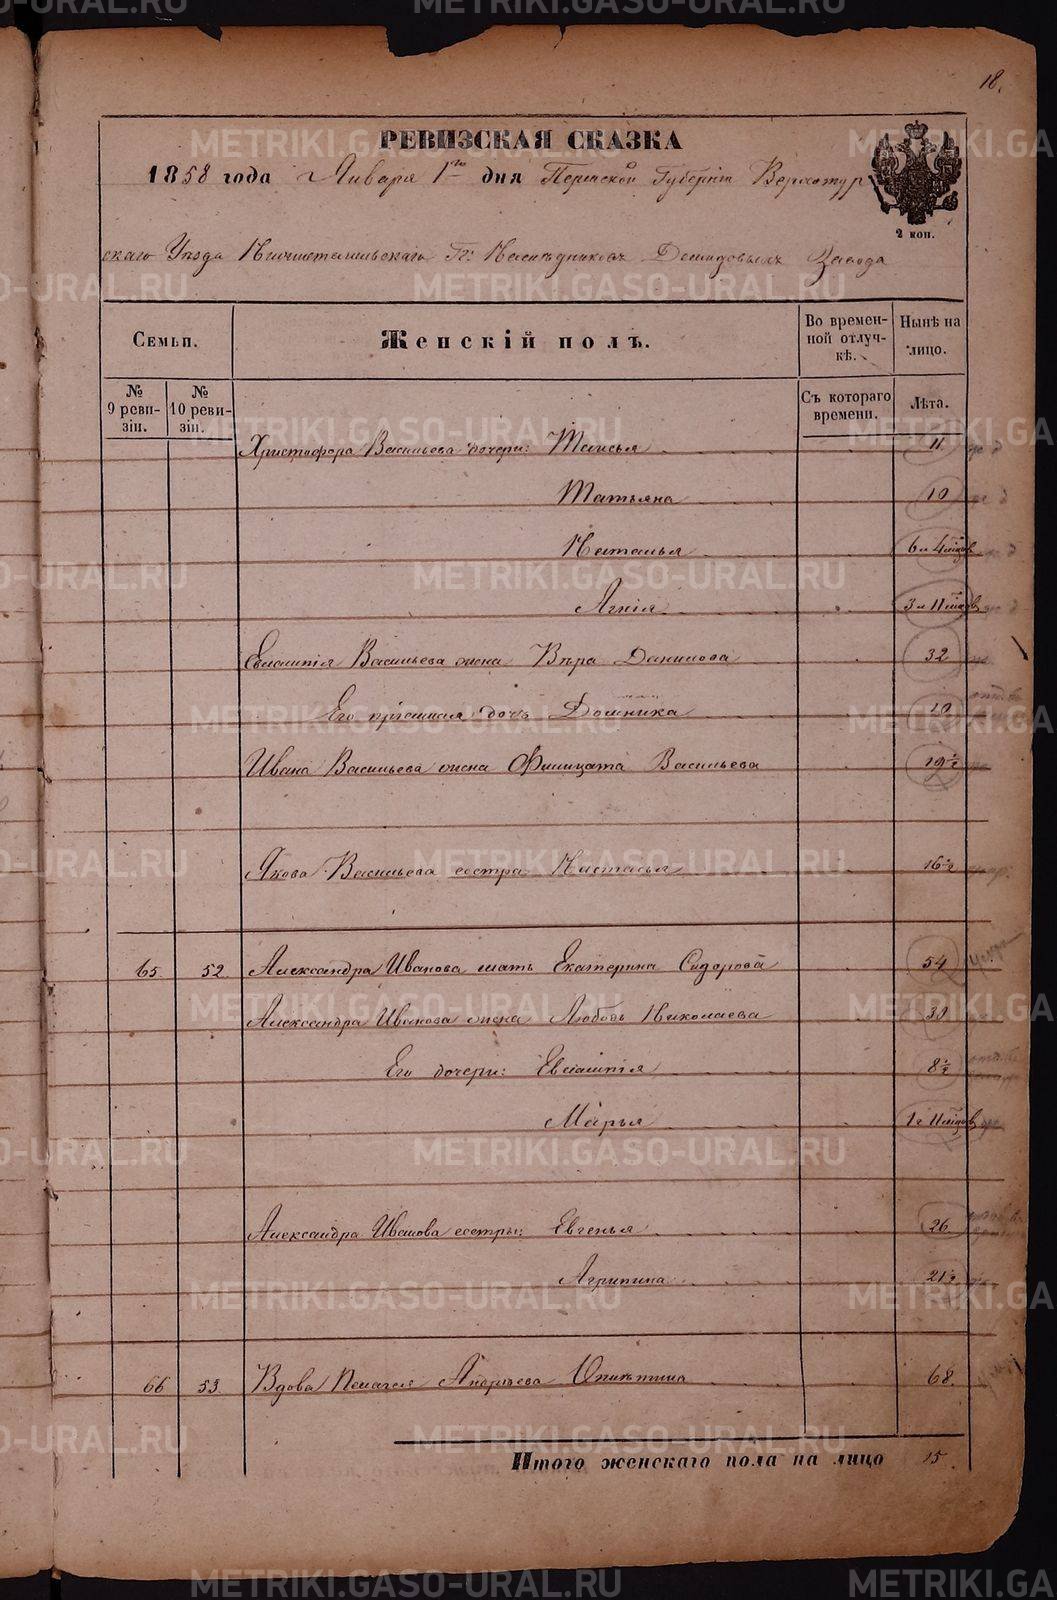 18.
РЕВИЗСКАЯ СКАЗКА
1858 года Января 1го дня Пермской Губерніи Верхотур
2 коп.
скаго Уѣзда Нижнетагильскаго Гг: Наслѣдниковъ Демидовыхъ Завода
Семьи.
Женскій полъ.
Во временной отлучкѣ.
Нынѣ на лицо.
№ 9 ревизіи.
№ 10 ревизіи.
Съ котораго времени.
Лѣта.
Христофора Васильева дочери: Таисья 11.
Татьяна 10
Наталья 6 и 4 мѣсяцов
Агнія 3 и 11 мѣсяцов
Евлампія Васильева жена Вѣра Данилова 32
Его пріемная дочь Домника 10
Ивана Васильева жена Филицата Васильева 19½
Якова Васильева сестра Настасья 16½
65 52 Александра Иванова мать Екатерина Сидорова 54
Александра Иванова жена Любовь Николаева 30
Его дочери: Евлампія 8½
Марья 1 и 11 мѣсяцов
Александра Иванова сестры: Евгенья 26
Агрипина 21½
66 53. Вдова Пелагея Андрѣева 68.
Итого женскаго пола на лицо 15.
METRIKI.GASO-URAL.RU